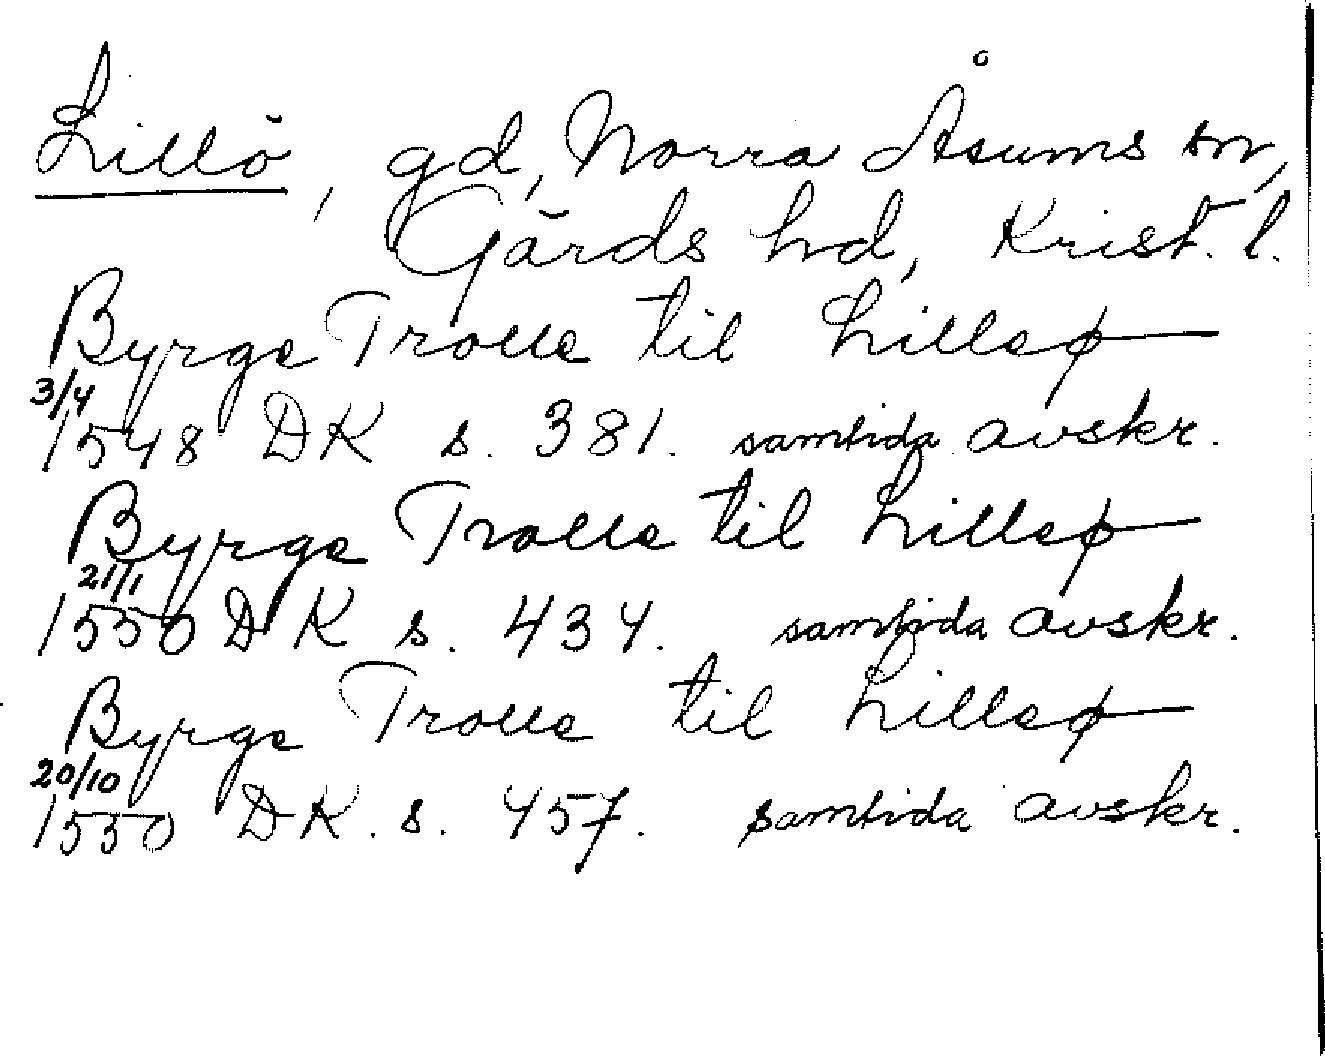 Lillö, gd, Norra Åsums sn,
Gärds hd, Krist. l.
Byrge Trolle til Lilleø
3/4
1548 DK s. 381. samtida avskr.
Byrge Trolle til Lilleø
21/1
1550 DK s. 434. samtida avskr.
Byrge Trolle til Lilleø
20/10
1550 DK. s. 457. samtida avskr.